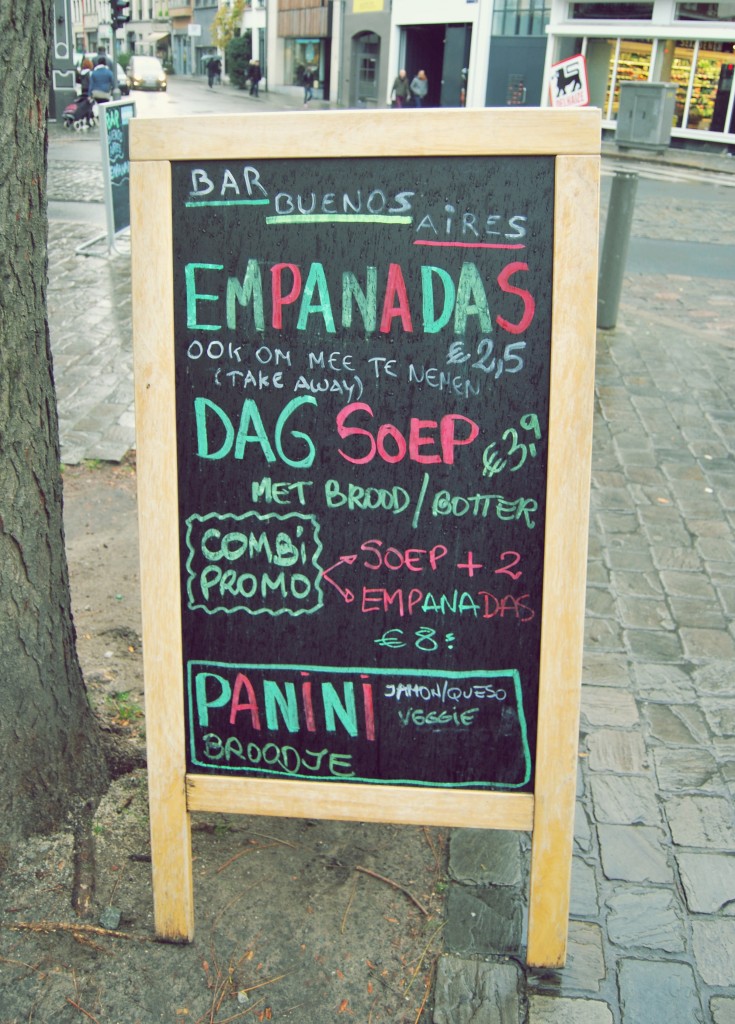 BAR BUENOS AiRES
EMPANADAS
OOK OM MEE TE NEMEN €2,5
(TAKE AWAY)
DAG SOEP €3,9
MET BROOD/BOTTER
COMBi PROMO
SOEP + 2
EMPANADAS
€8:
PANiNi JAMON/QUESO
VEGGIE
BROODJE
DELHAIZE
BAR